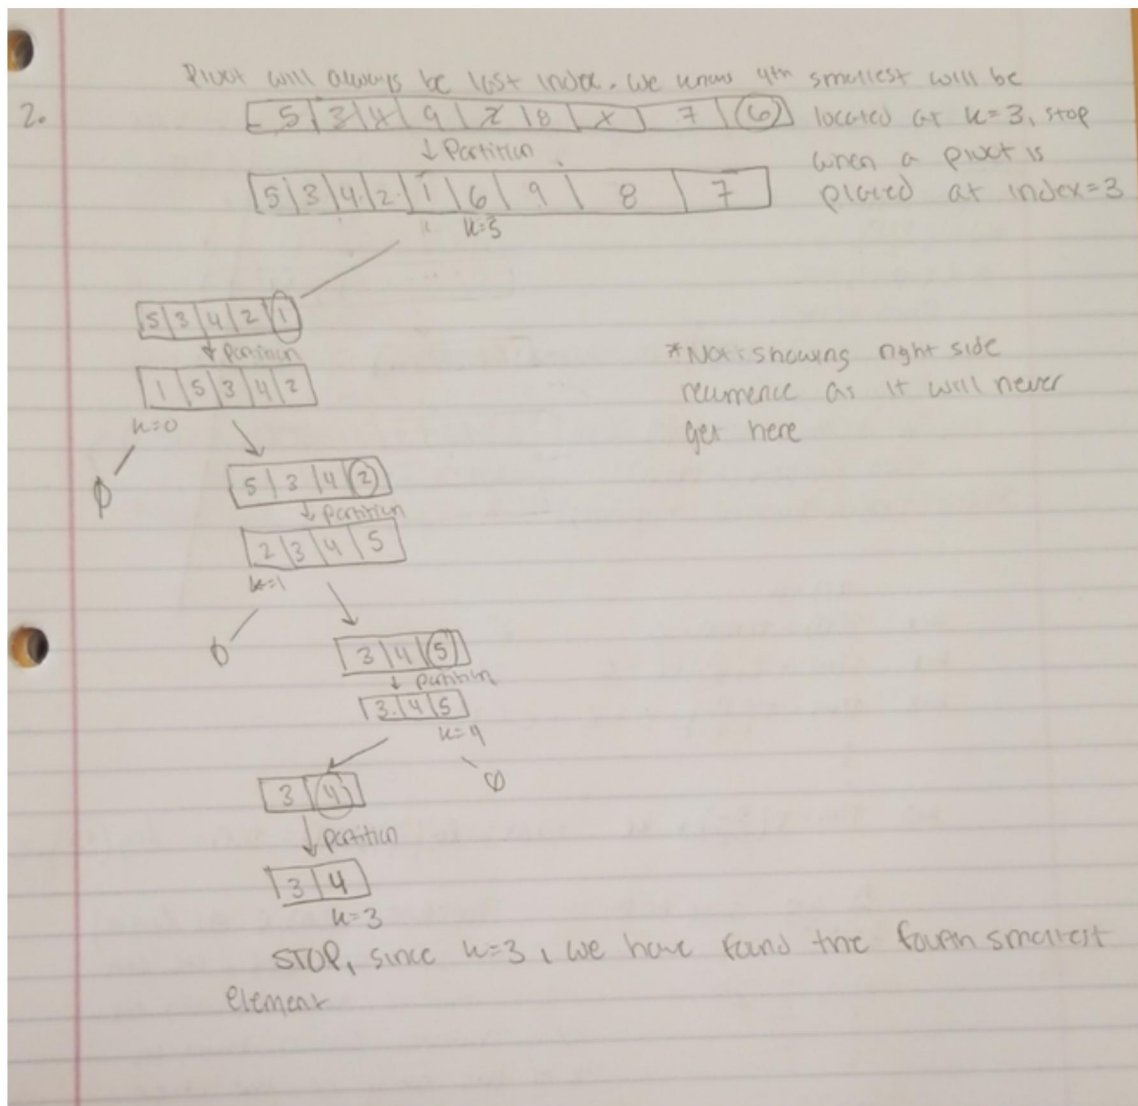 Pivot will always be last index. We know 4th smallest will be
2.
5 3 4 9 2 8 1 7 6 located at k=3, stop
↓ Partition when a pivot is
5 3 4 2 1 6 9 8 7 placed at index=3
k=5
5 3 4 2 1
↓ Partition
1 5 3 4 2
k=0
*Not showing right side
recurrence as it will never
get here
ϕ
5 3 4 2
↓ partition
2 3 4 5
k=1
ϕ
3 4 5
↓ partition
3 4 5
k=4
ϕ
3 4
↓ partition
3 4
k=3
STOP, since k=3, we have found the fourth smallest
element